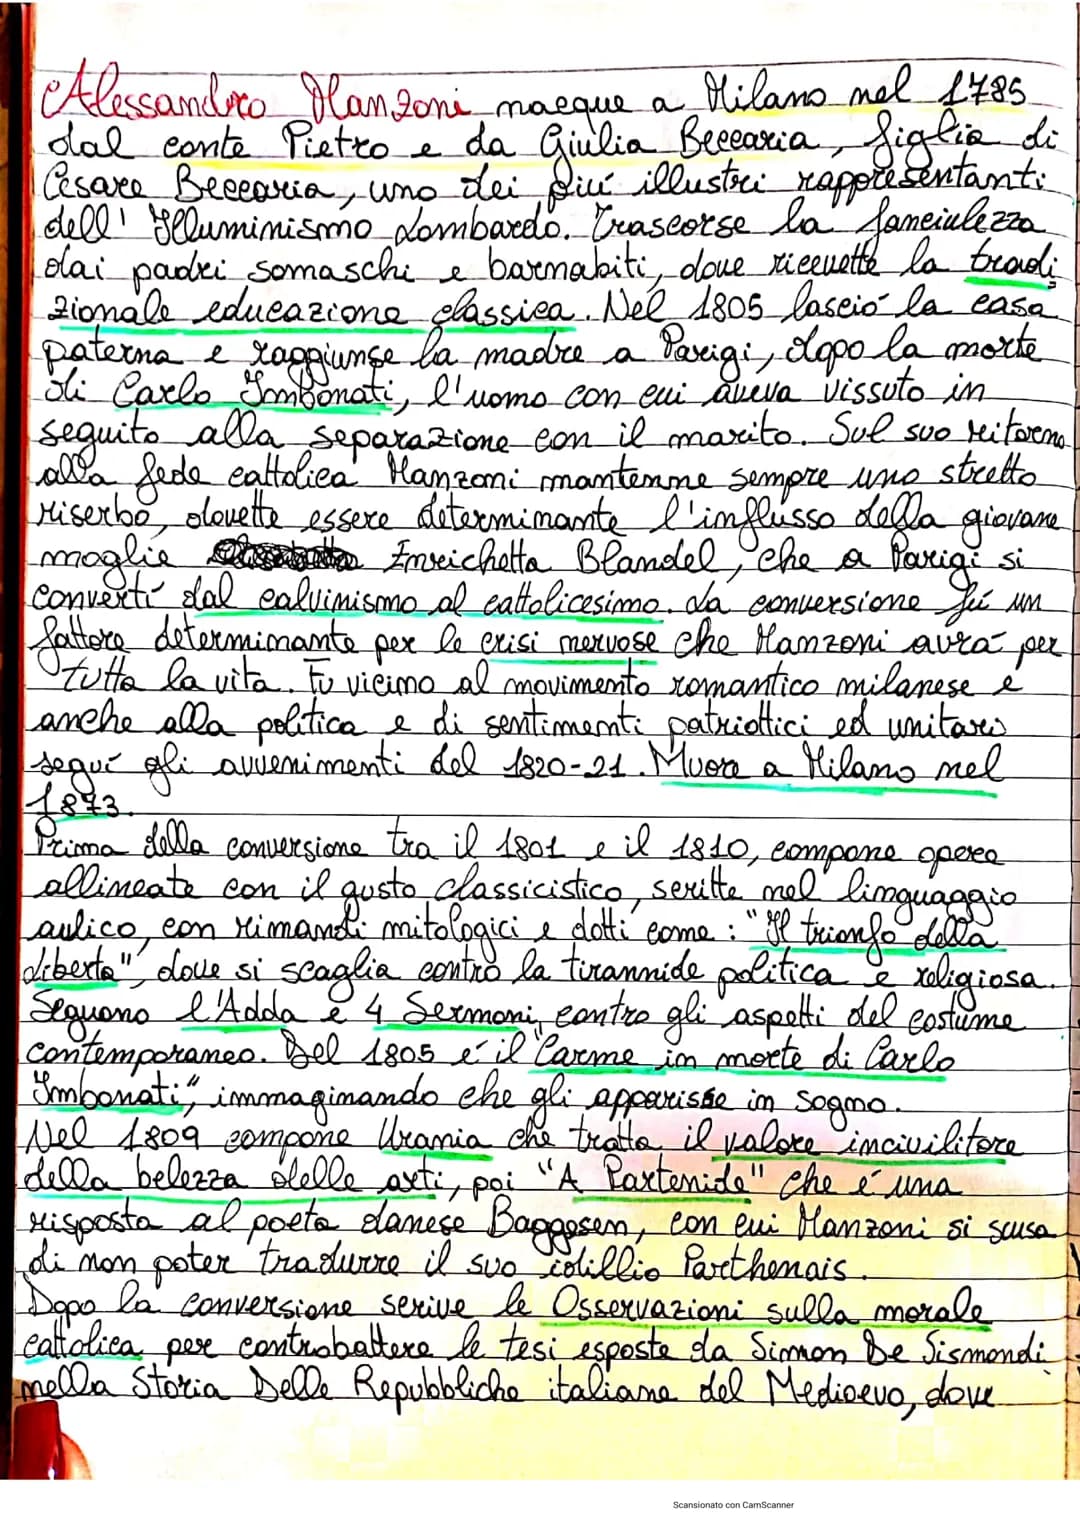 Alessandro Manzoni nacque a Milano nel 1785
dal conte Pietro e da Giulia Beccaria, figlia di
Cesare Beccaria, uno dei piú illustri rappresentanti
dell' Illuminismo Lombardo. Trascorse la fanciulezza
dai padri somaschi e barnabiti, dove ricevette la tradi
zionale educazione classica. Nel 1805 lasció la casa
paterna e raggiunse la madre a Parigi, dopo la morte
di Carlo Imbonati, l'uomo con cui aveva vissuto in
seguito alla separazione con il marito. Sul suo ritorno
alla fede cattolica Manzoni mantenne sempre uno stretto
riserbo, dovette essere determinante l'influsso della giovane
moglie Enrichetta Blandel, che a Parigi si
convertí dal calvinismo al cattolicesimo. La conversione fú un
fattore determinante per le crisi nervose che Manzoni avrá per
tutta la vita. Fu vicino al movimento romantico milanese e
anche alla politica e di sentimenti patriottici ed unitari
seguí gli avvenimenti del 1820-21. Muore a Milano nel
1873.
Prima della conversione tra il 1801 e il 1810, compone opere
allineate con il gusto classicistico, scritte nel linguaggio
aulico, con rimandi mitologici e dotti come: "Il trionfo della
liberta", dove si scaglia contro la tirannide politica e religiosa.
Seguono l'Adda e 4 Sermoni, contro gli aspetti del costume
contemporaneo. Del 1805 é il "Carme in morte di Carlo
Imbonati", immaginando che gli apparisse in sogno.
Nel 1809 compone Urania che tratta il valore incivilitore
della belezza delle arti, poi "A Partenide" che é una
risposta al poeta danese Baggesen, con cui Manzoni si scusa
di non poter tradurre il suo idillio Parthenais.
Dopo la conversione scrive le Osservazioni sulla morale
cattolica per controbattere le tesi esposte da Simon De Sismondi
nella Storia Delle Repubbliche italiane del Medioevo, dove
Scansionato con CamScanner